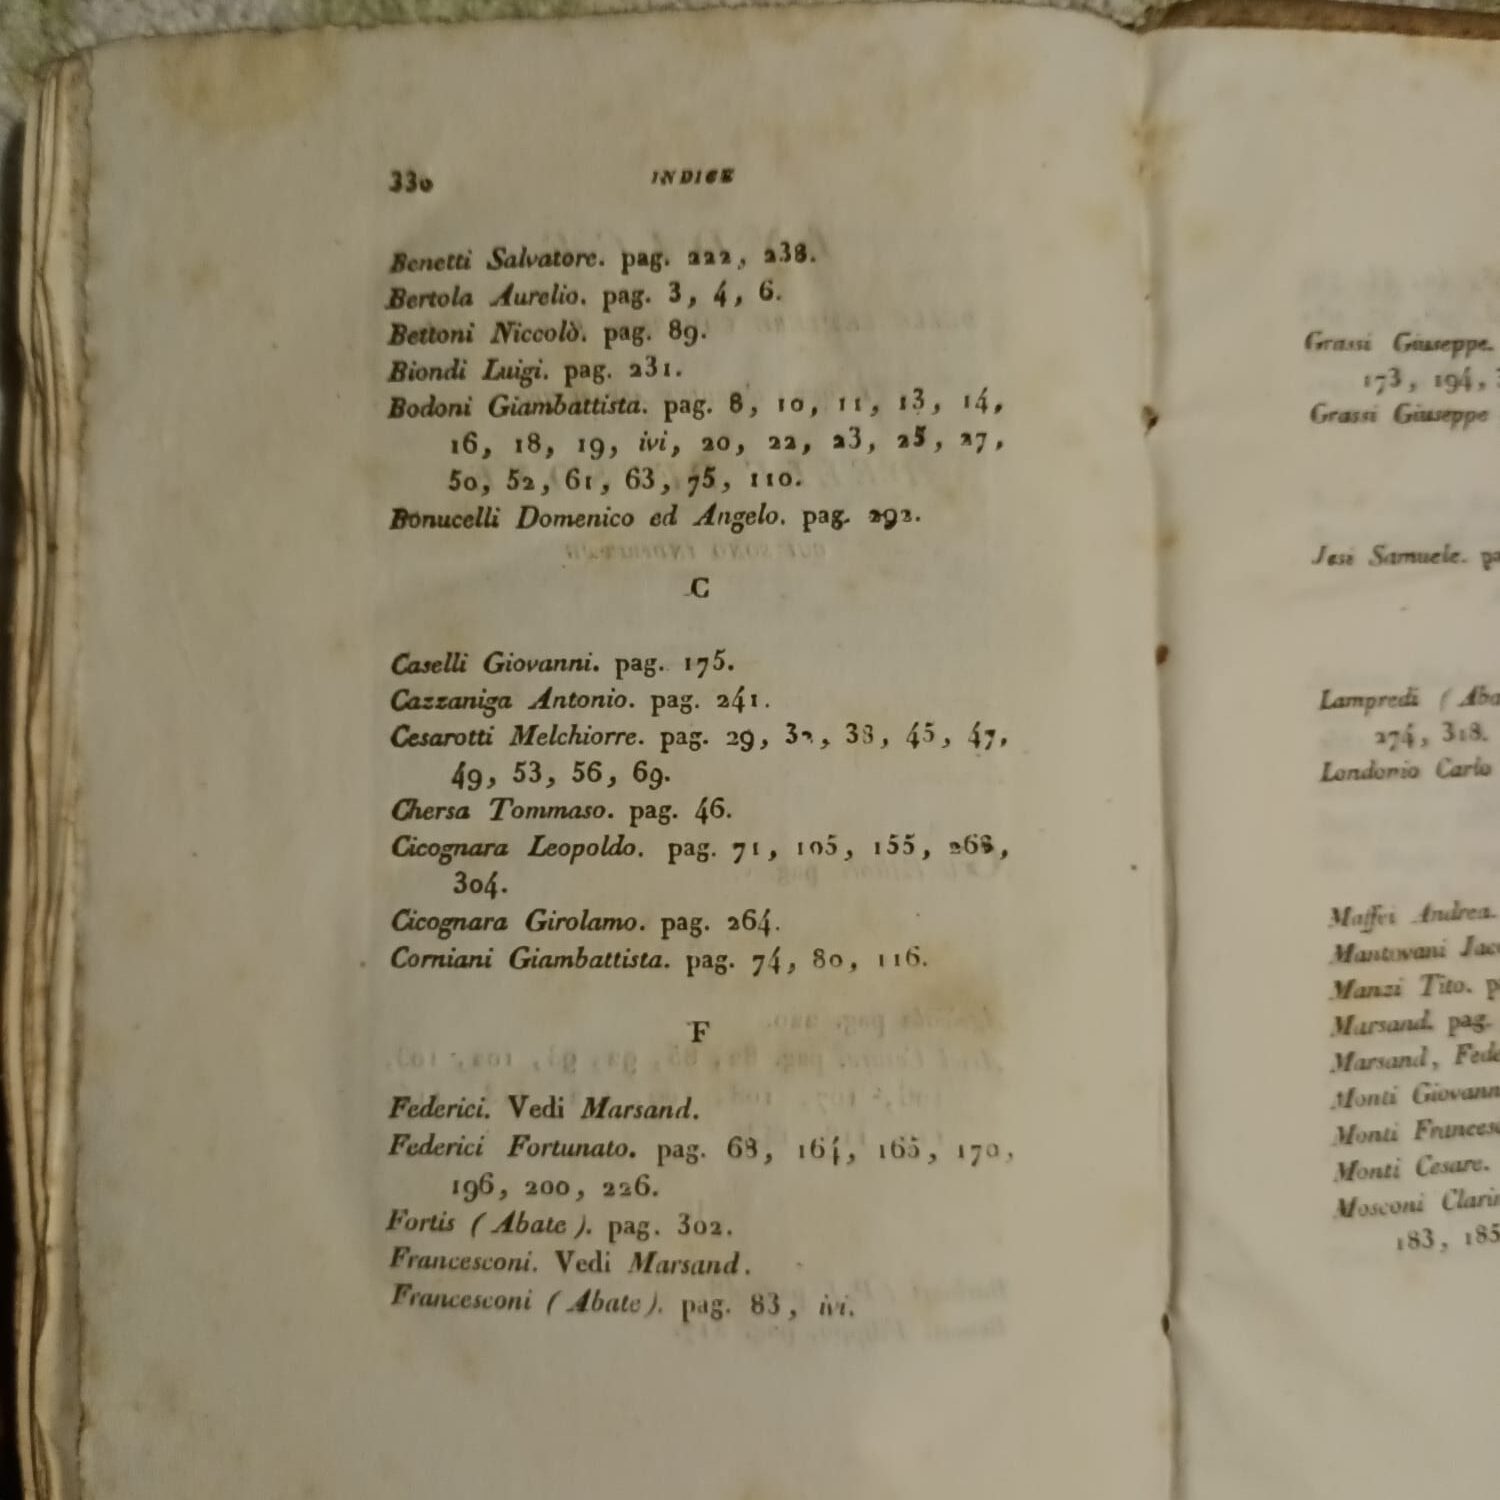 330 INDICE
Benetti Salvatore. pag. 222, 238.
Bertola Aurelio. pag. 3, 4, 6.
Bettoni Niccolò. pag. 89.
Biondi Luigi. pag. 231.
Bodoni Giambattista. pag. 8, 10, 11, 13, 14,
16, 18, 19, ivi, 20, 22, 23, 25, 27,
50, 52, 61, 63, 75, 110.
Bonucelli Domenico ed Angelo. pag. 292.
C
Caselli Giovanni. pag. 175.
Cazzaniga Antonio. pag. 241.
Cesarotti Melchiorre. pag. 29, 32, 38, 45, 47,
49, 53, 56, 69.
Chersa Tommaso. pag. 46.
Cicognara Leopoldo. pag. 71, 105, 155, 268,
304.
Cicognara Girolamo. pag. 264.
Corniani Giambattista. pag. 74, 80, 116.
F
Federici. Vedi Marsand.
Federici Fortunato. pag. 68, 164, 165, 170,
196, 200, 226.
Fortis (Abate). pag. 302.
Francesconi. Vedi Marsand.
Francesconi (Abate). pag. 83, ivi.
Grassi Giuseppe.
173, 194,
Grassi Giuseppe
Jesi Samuele.
Lampredi (
274, 318.
Londonio Carlo
Maffei Andrea.
Mantovani
Manzi Tito.
Marsand. pag.
Marsand,
Monti
Monti
Monti Cesare.
Mosconi
183, 185